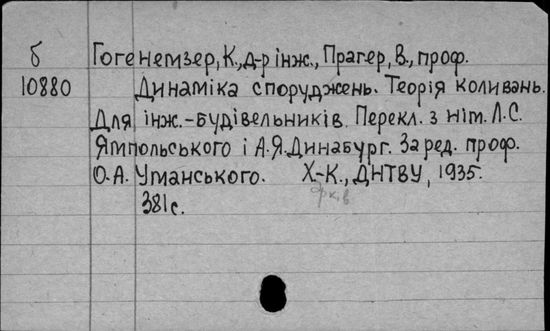 б Гогенемзер, К., д-р інж., Прагер, В., проф.
10880 Динаміка споруджень. Теорія коливань.
Для інж.-будівельників. Перекл. з нім. Л.С.
Ямпольського і А.Я. Динабург. За ред. проф.
О.А. Уманського. Х.-К., ДНТВУ, 1935.
381 с.